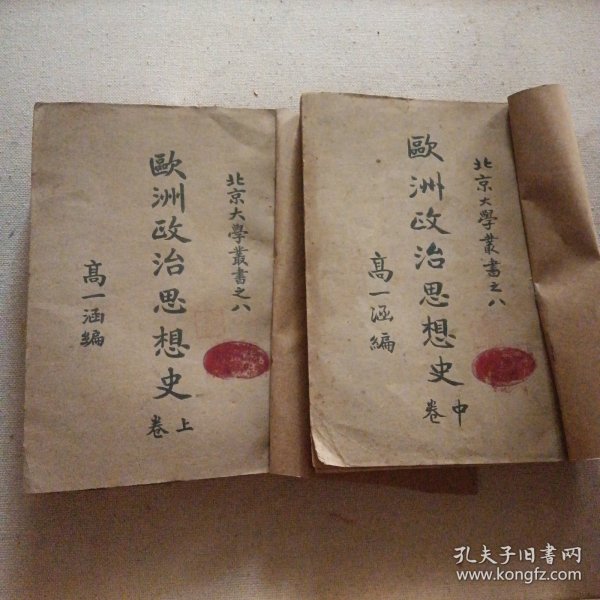 北京大學叢書之八
歐洲政治思想史
上卷
高一涵編
北京大學叢書之八
歐洲政治思想史
中卷
高一涵編
孔夫子旧书网
www.kongfz.com